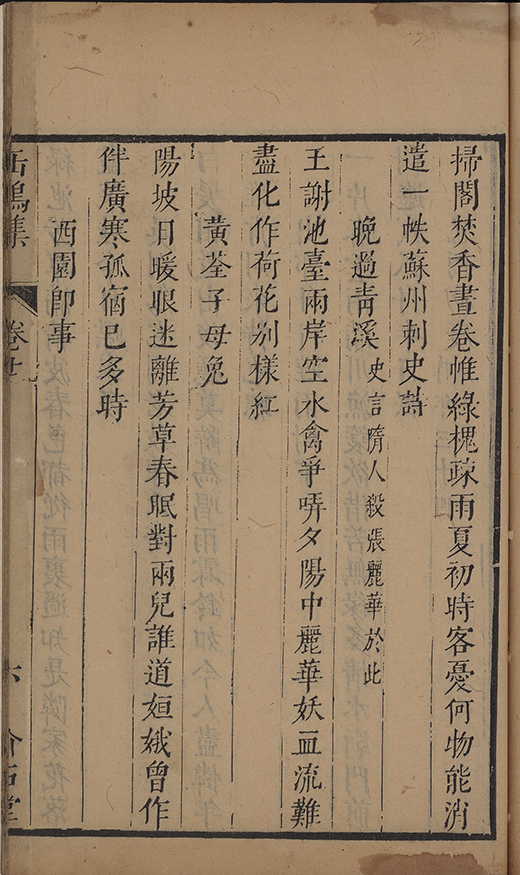 掃閣焚香晝卷帷綠槐疎雨夏初時客憂何物能消
遣一帙蘇州刺史詩
晚過靑溪 史言隋人殺張麗華於此
王謝池臺兩岸空水禽爭哢夕陽中麗華妖血流難
盡化作荷花别樣紅
黃荃子母兔
陽坡日暖眼迷離芳草春眠對兩兒誰道姮娥曾作
伴廣寒孤宿已多時
西園卽事
集 卷廿
六